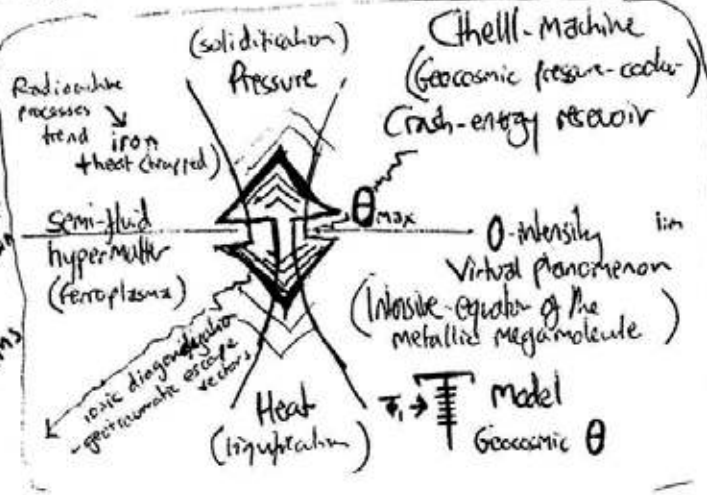 (solidification)
Pressure
Cthelll-Machine
(Geocosmic pressure-cooker)
Crash-energy resevoir
Radioactive
processes
trend
iron
+heat (trapped)
θmax
Semi-fluid
hypermatter
(ferroplasma)
0-intensity
lim
Virtual phenomenon
(Intensive-equator of the
metallic megamolecule)
ionic diagonalization
-geotraumatic escape
vectors
Heat
(liquification)
Model
Geocosmic θ